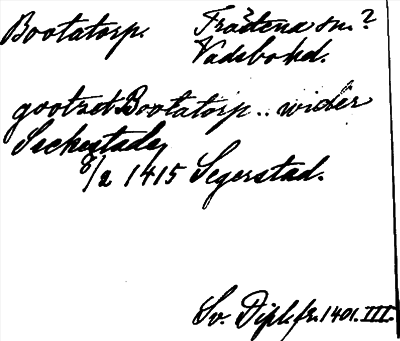 Bootatorp. Trästena sn.?
Vadsbo hd.
gootzet Bootatorp .. wider
Seckestade
8/2 1415 Segerstad.
Sv. Dipl. fr. 1401. III.